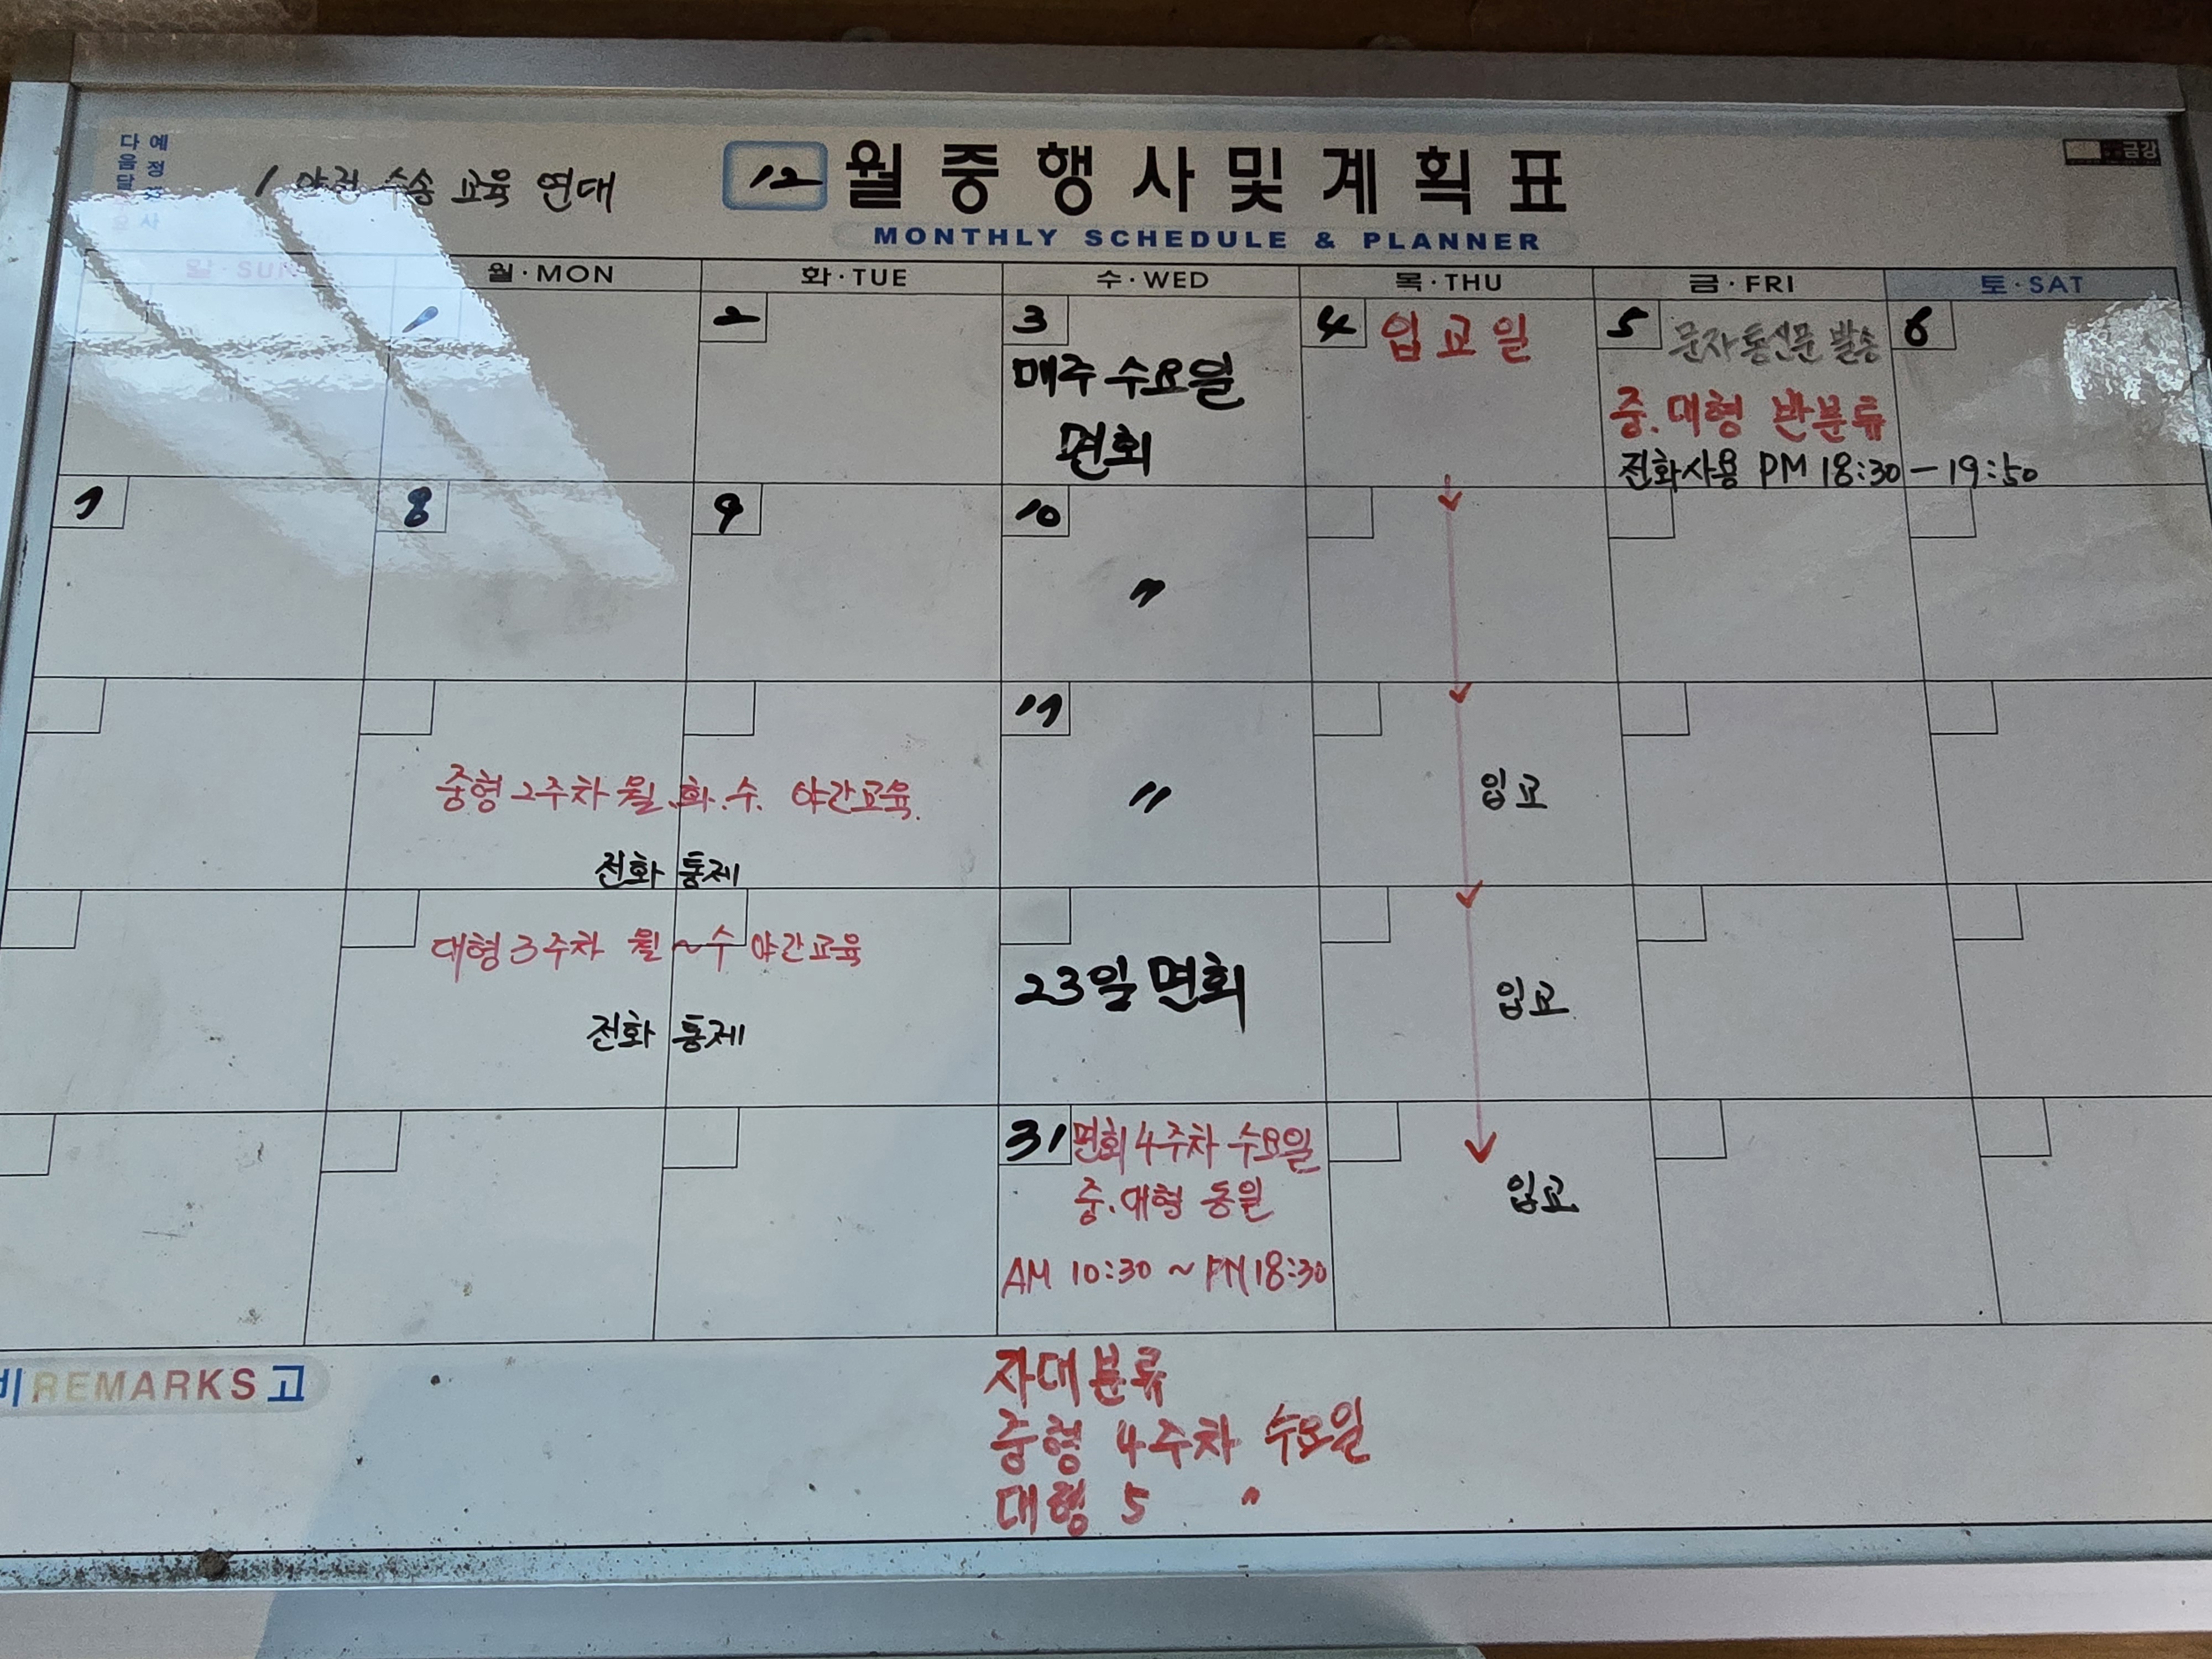 다음달
예정
1 야전 수송 교육 연대
12 월중행사및계획표
MONTHLY SCHEDULE & PLANNER
금강
일·SUN 월·MON 화·TUE 수·WED 목·THU 금·FRI 토·SAT
1 2 3 4 입교일 5 문자통신문 발송 6
매주 수요일
면회
중.대형 반분류
전화사용 PM 18:30 - 19:50
7 8 9 10
〃
17
중형 2주차 월.화.수. 야간교육.
〃
입교
전화 통제
대형 3주차 월~수 야간교육
23일 면회
입교
전화 통제
31 면회 4주차 수요일
중.대형 동일
입교
AM 10:30 ~ PM 18:30
비 REMARKS 고
자대분류
중형 4주차 수요일
대형 5 〃